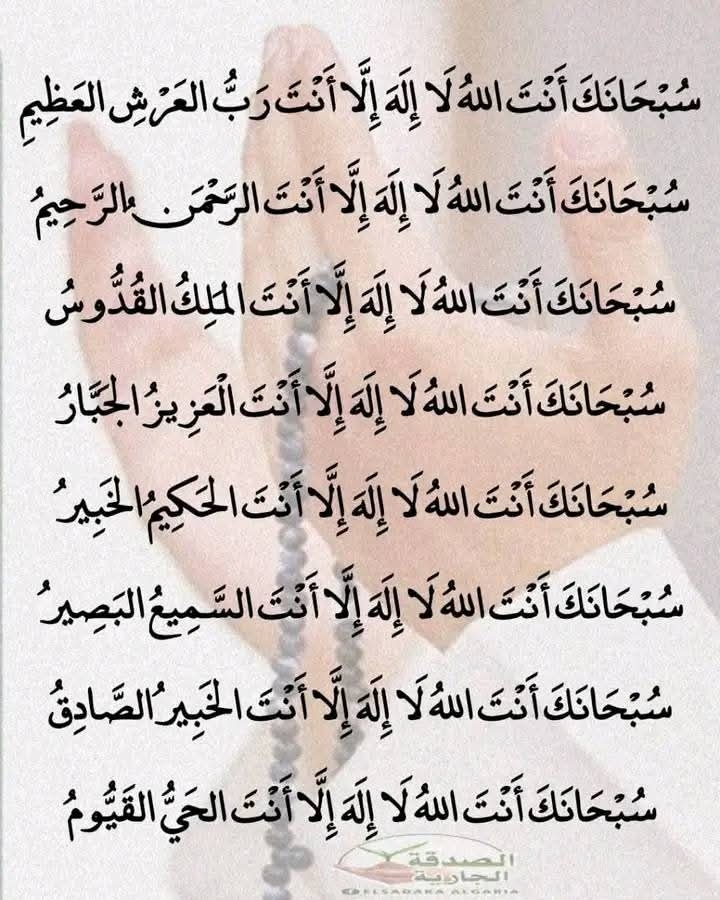 سُبْحَانَكَ أَنْتَ اللهُ لَا إِلَهَ إِلَّا أَنْتَ رَبُّ العَرْشِ العَظِيمِ
سُبْحَانَكَ أَنْتَ اللهُ لَا إِلَهَ إِلَّا أَنْتَ الرَّحْمَنُ الرَّحِيمُ
سُبْحَانَكَ أَنْتَ اللهُ لَا إِلَهَ إِلَّا أَنْتَ المَلِكُ القُدُّوسُ
سُبْحَانَكَ أَنْتَ اللهُ لَا إِلَهَ إِلَّا أَنْتَ الْعَزِيزُ الجَبَّارُ
سُبْحَانَكَ أَنْتَ اللهُ لَا إِلَهَ إِلَّا أَنْتَ الحَكِيمُ الخَبِيرُ
سُبْحَانَكَ أَنْتَ اللهُ لَا إِلَهَ إِلَّا أَنْتَ السَّمِيعُ البَصِيرُ
سُبْحَانَكَ أَنْتَ اللهُ لَا إِلَهَ إِلَّا أَنْتَ الخَبِيرُ الصَّادِقُ
سُبْحَانَكَ أَنْتَ اللهُ لَا إِلَهَ إِلَّا أَنْتَ الحَيُّ القَيُّومُ
الصدقة
الجارية
ELSADAKA ALGARIA